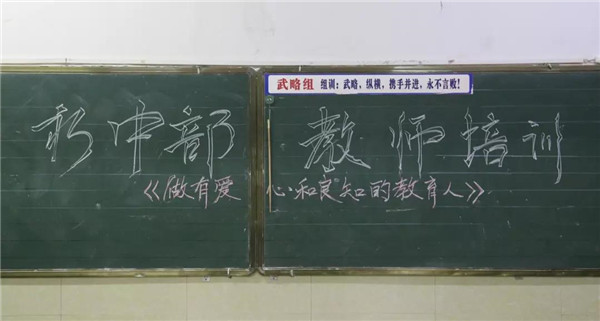 武略组 组训：武略、纵横，携手并进，永不言败！
初中部 教师培训
《做有爱心和良知的教育人》